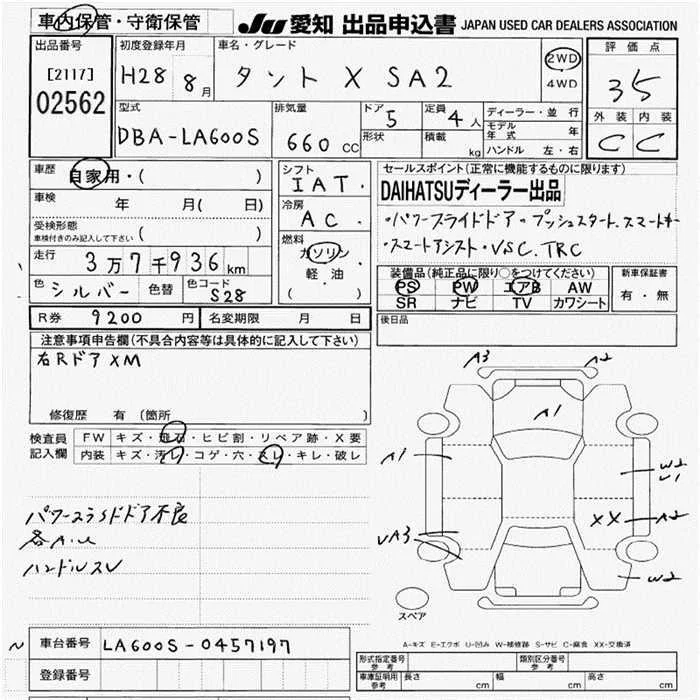 車内保管・守衛保管
JU 愛知 出品申込書 JAPAN USED CAR DEALERS ASSOCIATION
出品番号
[2117]
02562
初度登録年月
H28 8月
車名・グレード
タント X SA2
2WD
4WD
評価点
35
外装 内装
C C
型式
DBA-LA600S
排気量
660 CC
ドア 5
形状
定員 4人
積載 kg
ディーラー・並行
モデル年式 年
ハンドル 左・右
車歴 自家用・( )
車検 年 月( 日)
受検形態
車検付きのみ記入して下さい ( )
走行 3万7千936km
色 シルバー 色替 色コード S28
シフト
IAT.
冷房
AC.
燃料
ガソリン
軽油
( )
セールスポイント(正常に機能するものに限ります)
DAIHATSUディーラー出品
・パワースライドドア・プッシュスタート.スマートキー
・スマートアシスト・VSC.TRC
装備品(純正品に限り○をつけてください)
PS PW エアB AW
SR ナビ TV カワシート
新車保証書
有・無
R券 9200 円 名変期限 月 日
後日品
注意事項申告欄(不具合内容等は具体的に記入して下さい)
右Rドア XM
修復歴 有 (箇所 )
検査員記入欄
FW キズ・飛石・ヒビ割・リペア跡・X要
内装 キズ・汚レ・コゲ・穴・スレ・キレ・破レ
パワースライドドア不良
各A.U
ハンドルスレ
A3 A2
A1
A1
W2
U1
XX A2
UA3
W2
スペア
A-キズ E-エクボ U-凹み W-補修跡 S-サビ C-腐食 XX-交換済
車台番号 LA600S-0457197
登録番号
形式指定番号 参考
類別区分番号 参考
車庫証明用 参考 長さ cm 幅 cm 高さ cm